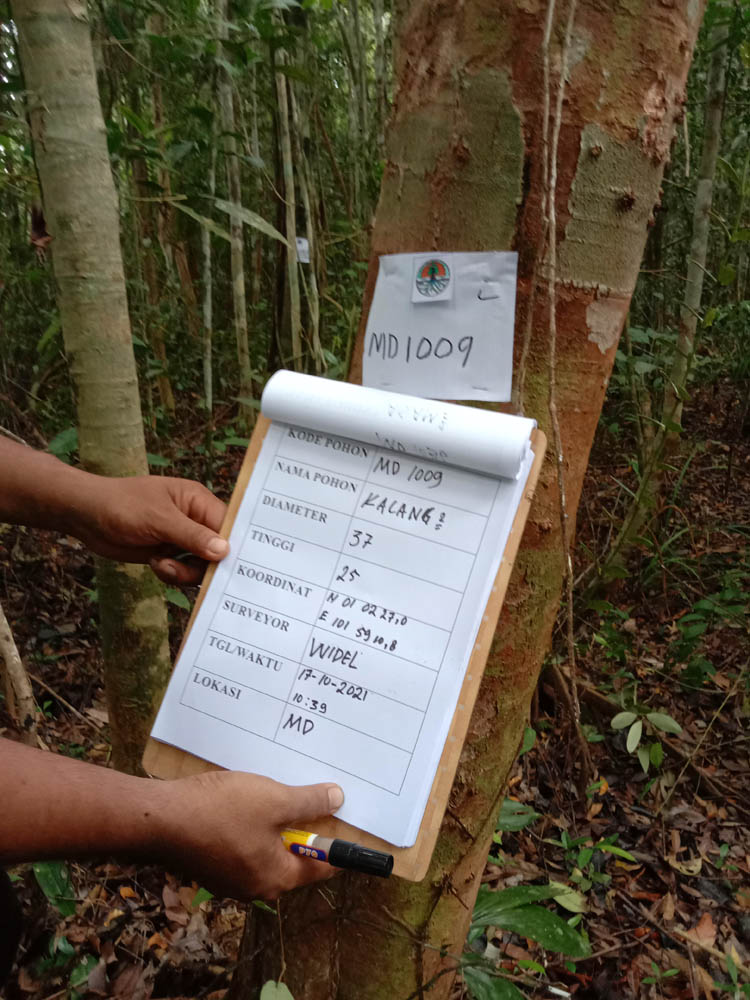 MD1009
KODE POHON MD 1009
NAMA POHON KALANG2
DIAMETER 37
TINGGI 25
KOORDINAT N 01 02 27,0
E 101 59 10,8
SURVEYOR WIDEL
TGL/WAKTU 17-10-2021
10:39
LOKASI MD